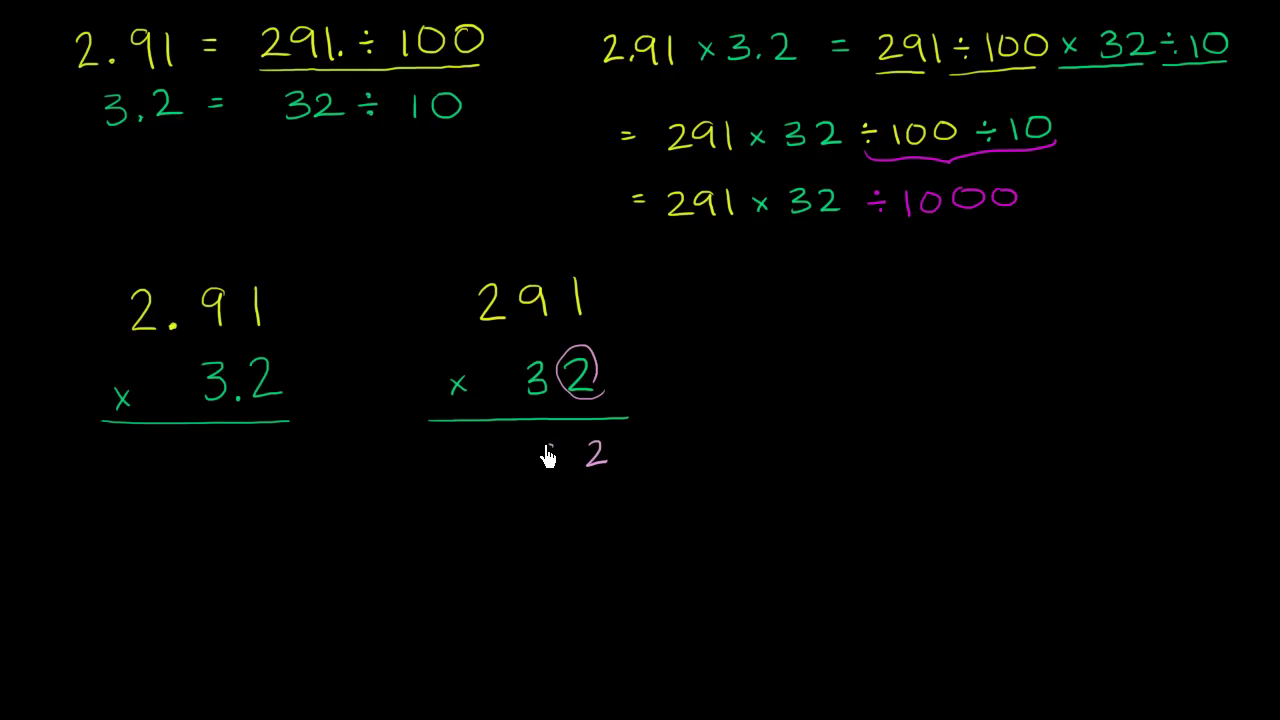 2.91 = 291. ÷ 100
3.2 = 32 ÷ 10
2.91 × 3.2 = 291 ÷ 100 × 32 ÷ 10
= 291 × 32 ÷ 100 ÷ 10
= 291 × 32 ÷ 1000
2.91
× 3.2
291
× 32
2